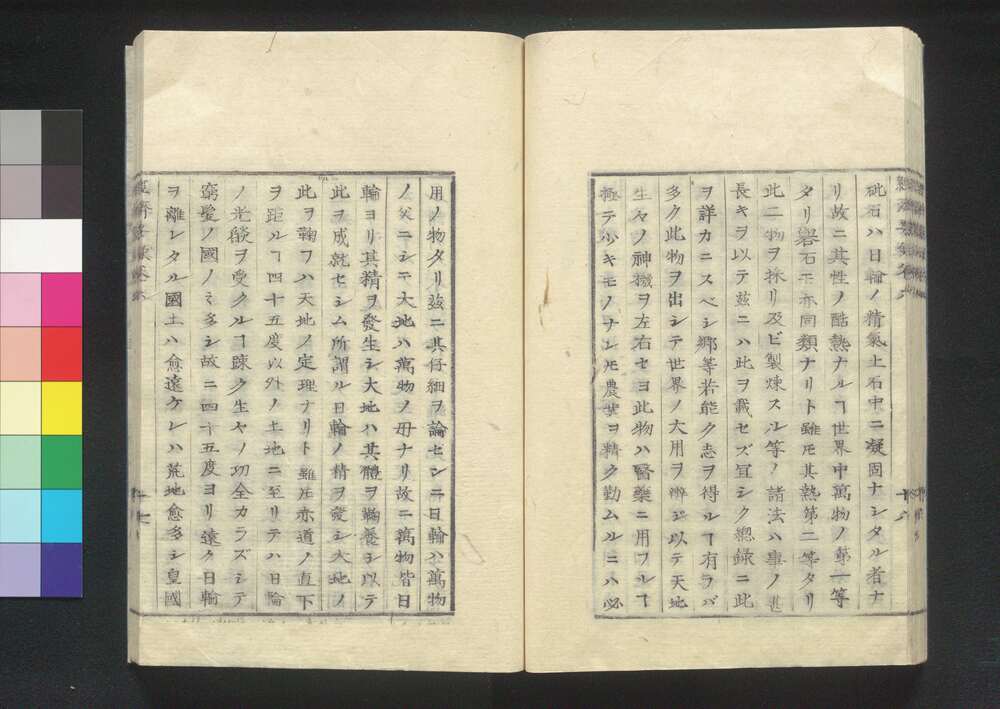 砒石ハ日輪ノ精氣土石中ニ凝固ナシタル者ナ
リ故ニ其性ノ酷熱ナルヿ世界中萬物ノ第一等
タリ礜石モ亦同類ナリト雖𪜈其熱第二等タリ
此二物ヲ採リ及ビ製煉スル等ノ諸法ハ事ノ甚
長キヲ以テ茲ニハ此ヲ載セズ宜シク總録ニ此
ヲ詳カニスベシ郷等若能ク志ヲ得ルヿ有ラバ
多ク此物ヲ出シテ世界ノ大用ヲ辨ジ以テ天地
生々ノ神機ヲ左右セヨ此物ハ醫藥ニ用フルヿ
極テ少キモノナレ𪜈農業ヲ精ク勤ムルニハ必
用ノ物タリ茲ニ其仔細ヲ論センニ日輪ハ萬物
ノ父ニシテ大地ハ萬物ノ母ナリ故ニ萬物皆日
輪ヨリ其精ヲ發生シ大地ハ其體ヲ鞠養シ以テ
此ヲ成就セシム所謂ル日輪ノ精ヲ發シ大地ノ
此ヲ鞠フハ天地ノ定理ナリト雖𪜈赤道ノ直下
ヲ距ルヿ四十五度以外ノ土地ニ至リテハ日輪
ノ光燄ヲ受クルヿ疎ク生々ノ功全カラズシテ
窮髮ノ國ノミ多シ故ニ四十五度ヨリ遠ク日輪
ヲ離レタル國土ハ愈遠ケレハ荒地愈多シ皇國